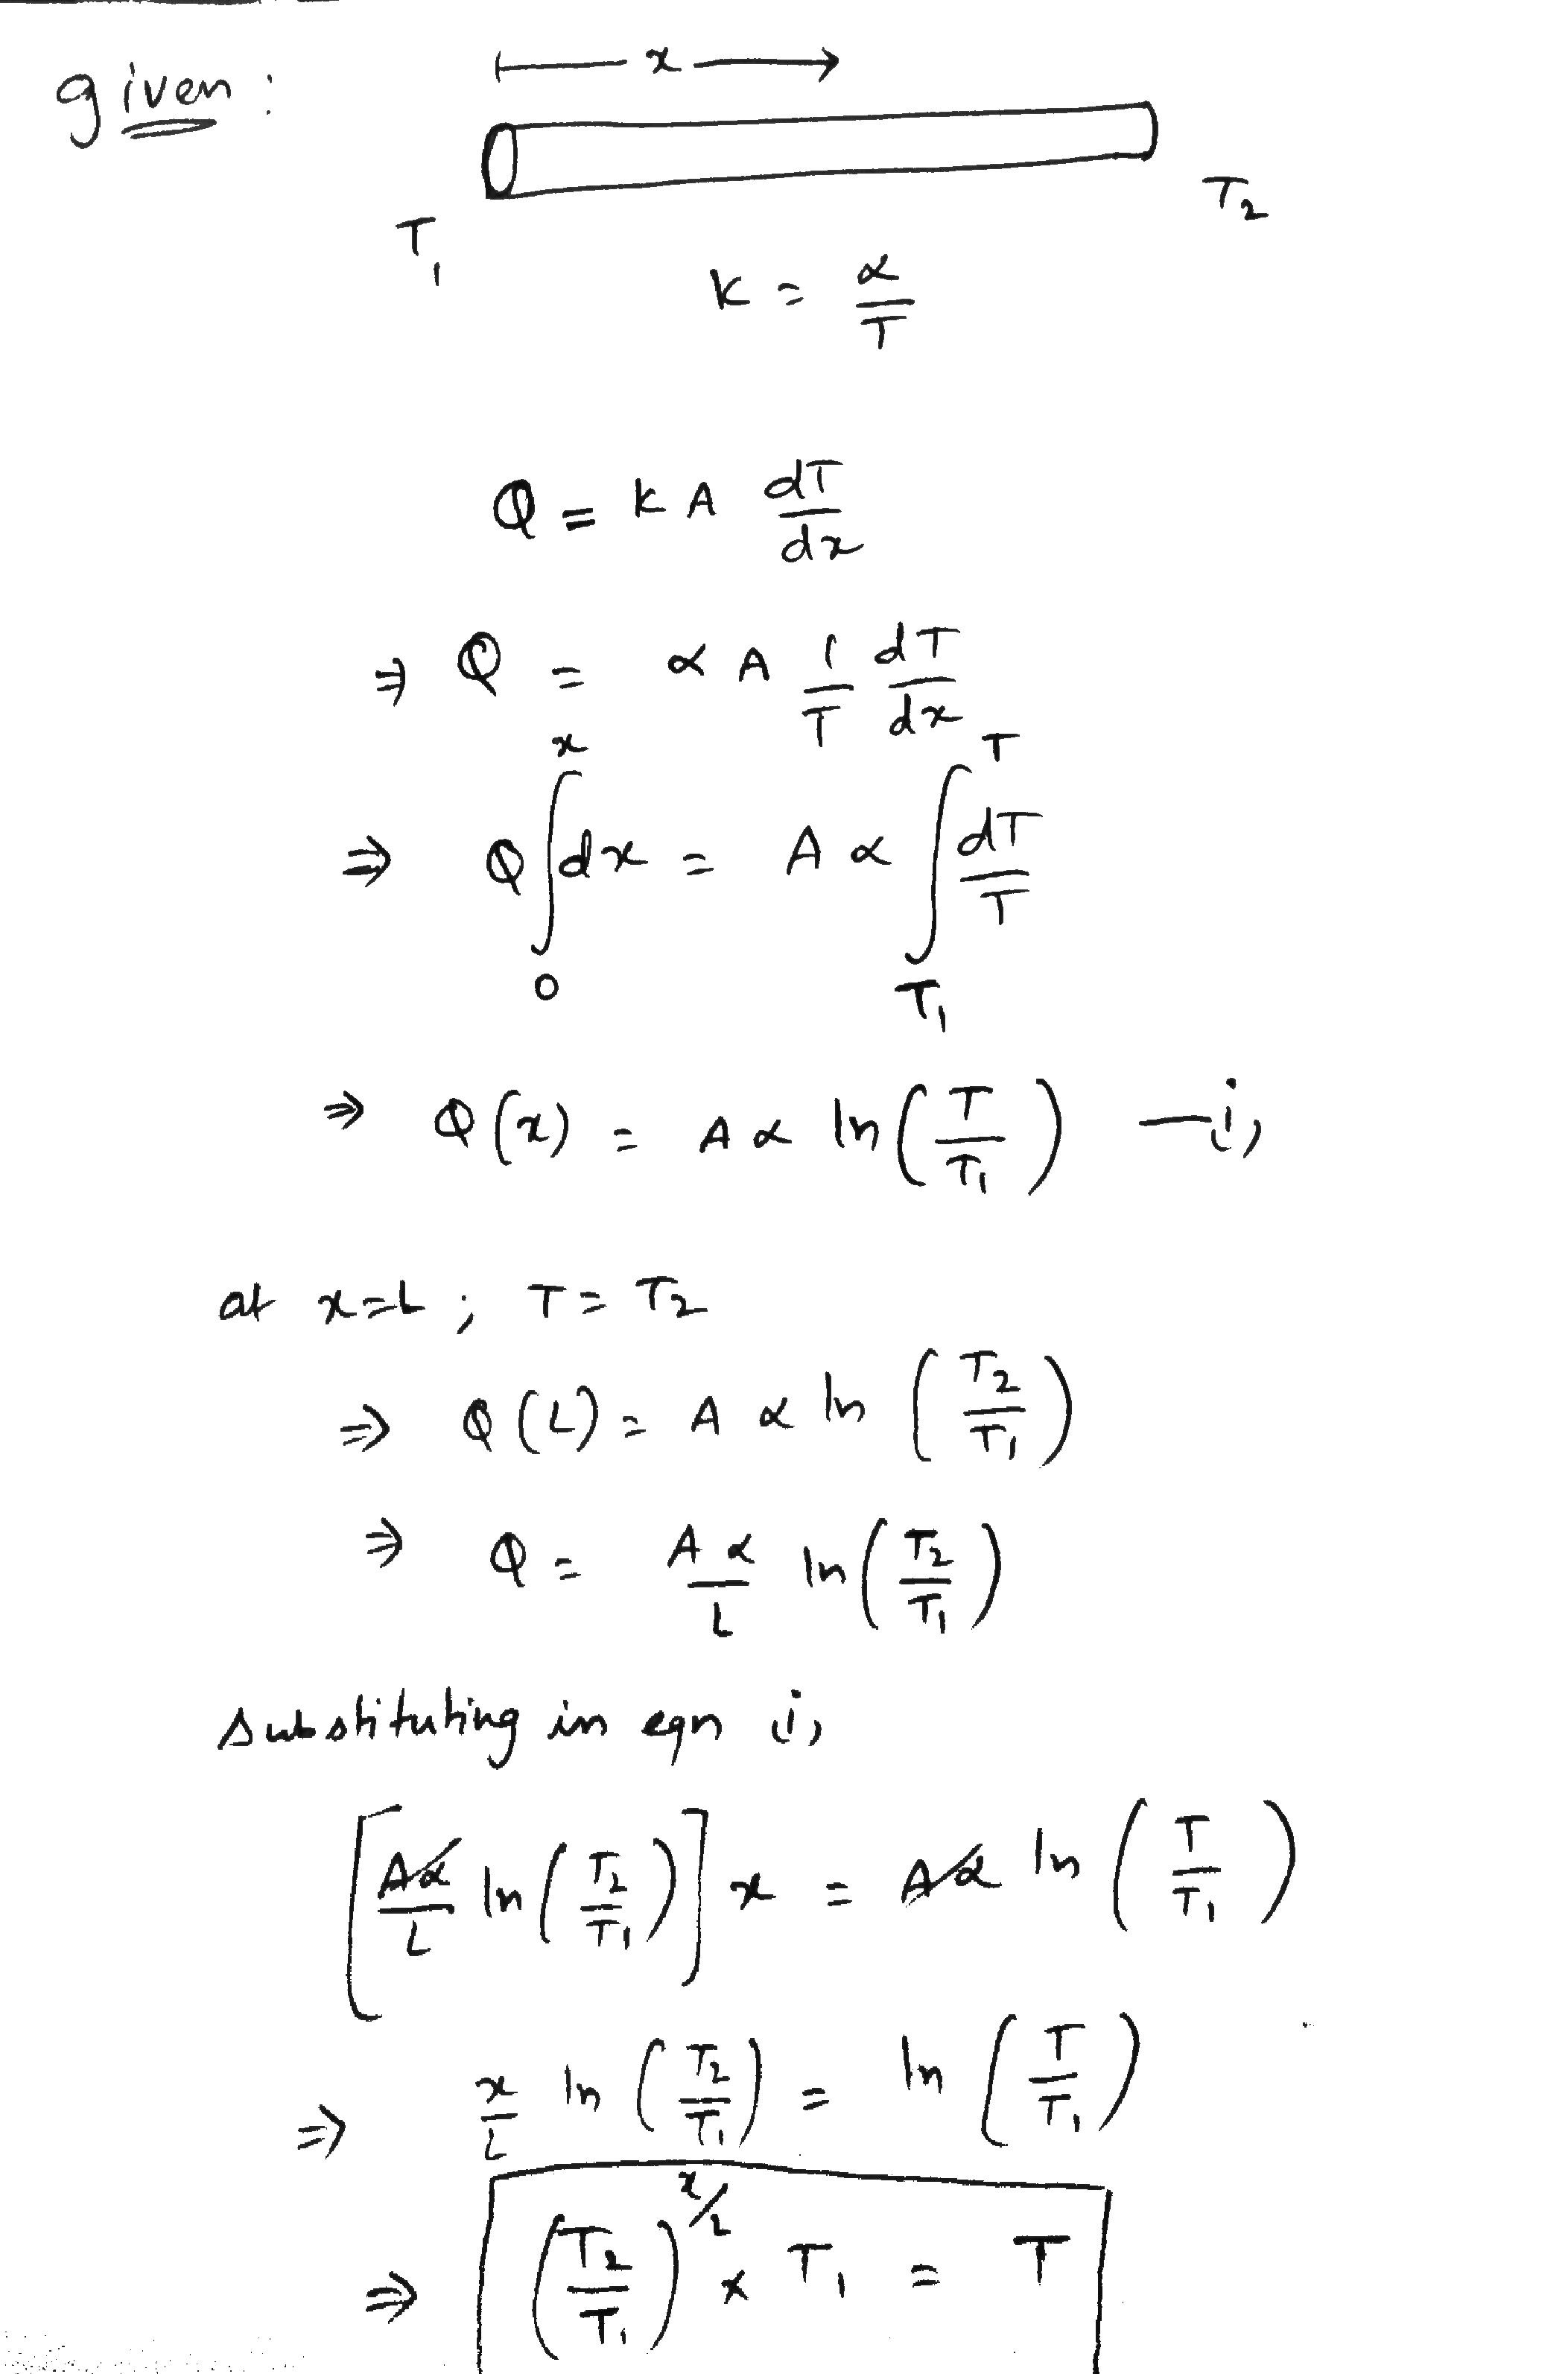 given :
x
T₁ T₂
K = α/T
Q = K A dT/dx
⇒ Q = α A 1/T dT/dx
⇒ Q ∫₀ˣ dx = A α ∫_{T₁}^{T} dT/T
⇒ Q (x) = A α ln (T/T₁) — i,
at x=L ; T = T₂
⇒ Q (L) = A α ln (T₂/T₁)
⇒ Q = A α/L ln (T₂/T₁)
substituting in eqn i,
[Aα/L ln (T₂/T₁)] x = Aα ln (T/T₁)
⇒ x/L ln (T₂/T₁) = ln (T/T₁)
⇒ (T₂/T₁)^{x/L} × T₁ = T